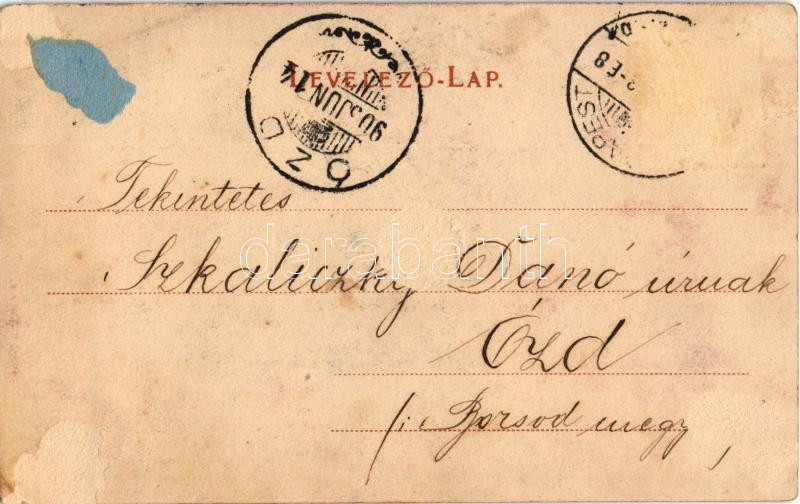 LEVELEZŐ-LAP.
ÓZD
903 JUN 14
Tekintetes
Szkaliczky Danó úrnak
Ózd
/: Borsod megy
darabanth